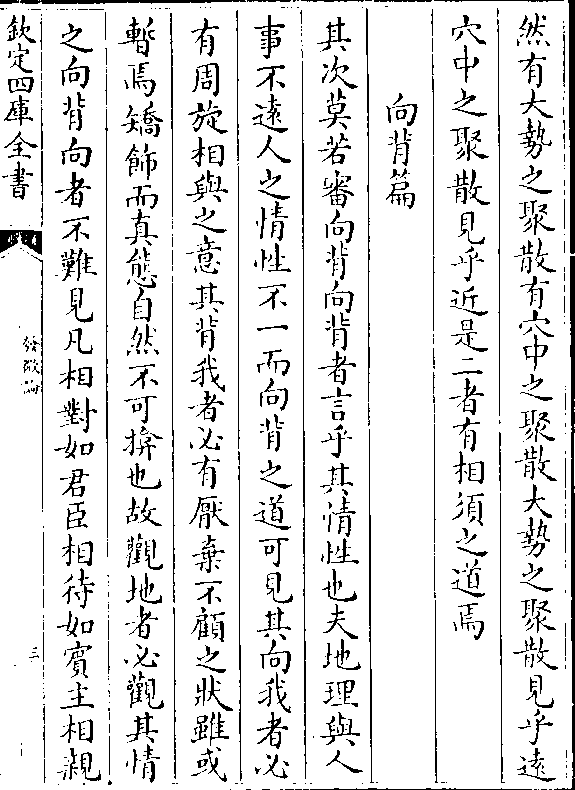 然有大勢之聚散有穴中之聚散大勢之聚散見乎遠
穴中之聚散見乎近是二者有相須之道焉
向背篇
其次莫若審向背向背者言乎其情性也夫地理與人
事不遠人之情性不一而向背之道可見其向我者必
有周旋相與之意其背我者必有厭棄不顧之狀雖或
暫焉矯飾而真態自然不可揜也故觀地者必觀其情
之向背向者不難見凡相對如君臣相待如賓主相親
欽定四庫全書
發微論
三